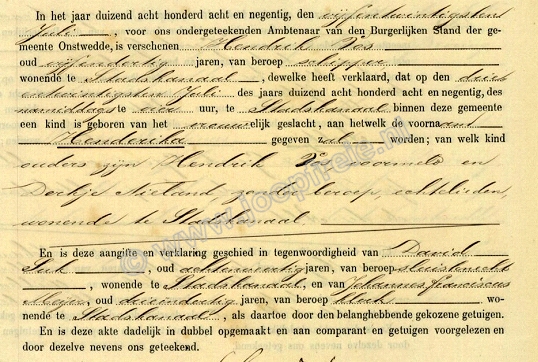 In het jaar duizend acht honderd acht en negentig, den vijfentwintigsten
Juli, voor ons ondergeteekenden Ambtenaar van den Burgerlijken Stand der ge-
meente Onstwedde, is verschenen Hendrik Vos
oud vijfendertig jaren, van beroep schipper
wonende te Stadskanaal, dewelke heeft verklaard, dat op den drieë
entwintigsten Juli des jaars duizend acht honderd acht en negentig, des
namiddags te een uur, te Stadskanaal binnen deze gemeente
een kind is geboren van het vrouwelijk geslacht, aan hetwelk de voornaam
Henderika gegeven zal worden; van welk kind
ouders zijn Hendrik Vos voormeld en
Doekje Nieland, zonder beroep, echtelieden,
wonende te Stadskanaal.
En is deze aangifte en verklaring geschied in tegenwoordigheid van David
, oud achtenveertig jaren, van beroep sluisknecht
, wonende te Stadskanaal, en van Johannes Franciscus
Meijer, oud drieëndertig jaren, van beroep klerk wo-
nende te Stadskanaal, als daartoe door den belanghebbende gekozene getuigen.
En is deze akte dadelijk in dubbel opgemaakt en aan comparant en getuigen voorgelezen en
door dezelve nevens ons geteekend.
© www.joopinele.nl